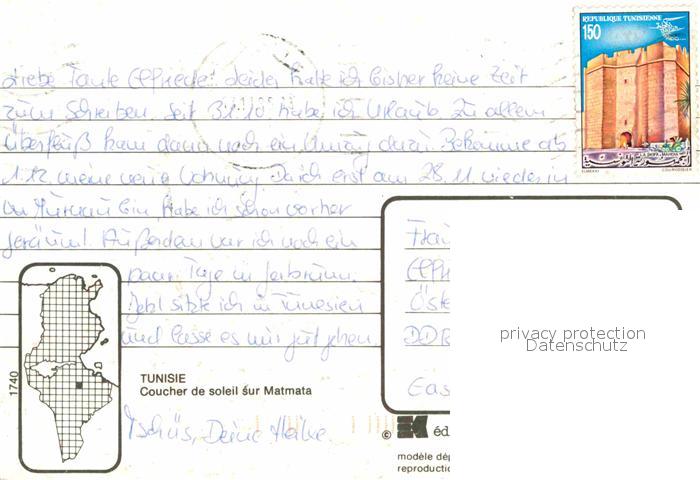 Liebe Tante Elfriede! Leider habe ich bisher keine Zeit
zum Schreiben. Seit 31.10. habe ich Urlaub. Zu allem
Überfluß kam dann noch ein Umzug dazu. Bekomme ab
1.12. meine neue Wohnung. Da ich erst am 28.11. wieder in
bin, habe ich schon vorher
geräumt. Außerdem war ich noch ein
paar Tage in
Jetzt sitze ich in Tunesien
und lasse es mir gut gehen.
Tschüs, Deine Heike.
REPUBLIQUE TUNISIENNE
150
Frau
Elfri
Öste
DDR
Eas
privacy protection
Datenschutz
1740
TUNISIE
Coucher de soleil sur Matmata
© éd
modèle dép
reproductio